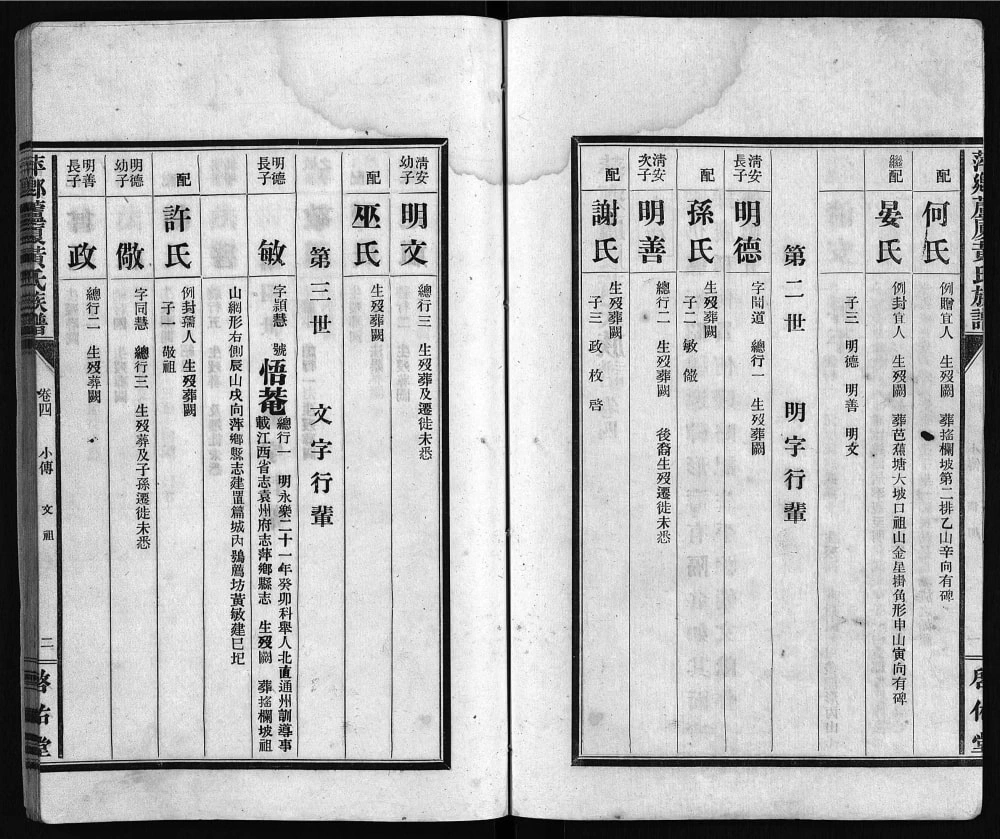 配 何氏 例贈宜人 葬搖欄坡第二排乙山辛向有碑
繼配 晏氏 例封宜人 生歿闕 葬芭蕉塘大坡口祖山金星掛角形申山寅向有碑
子三 明德 明善 明文
第二世 明字行輩
清安長子 明德 字聞道 總行一 生歿葬闕
配 孫氏 生歿葬闕
子二 敏 儆
清安次子 明善 總行二 生歿葬闕 後裔生歿遷徙未悉
配 謝氏 生歿葬闕
子三 政 枚 啓
清安幼子 明文 總行三 生歿葬及遷徙未悉
配 巫氏 生歿葬闕
第三世 文字行輩
明德長子 敏 字穎慧 號悟菴 總行一 明永樂二十一年癸卯科舉人北直通州訓導事
載江西省志袁州府志萍鄉縣志 生歿闕 葬搖欄坡祖
山網形右側辰山戌向萍鄉縣志建置篇城內鶚薦坊黃敏建已圮
配 許氏 例封孺人 生歿葬闕
子一 敬祖
明德幼子 儆 字同慧 總行三 生歿葬及子孫遷徙未悉
明善長子 政 總行二 生歿葬闕
萍鄉蘆廈黃氏族譜 卷四 小傳 文祖 二 啓佑堂